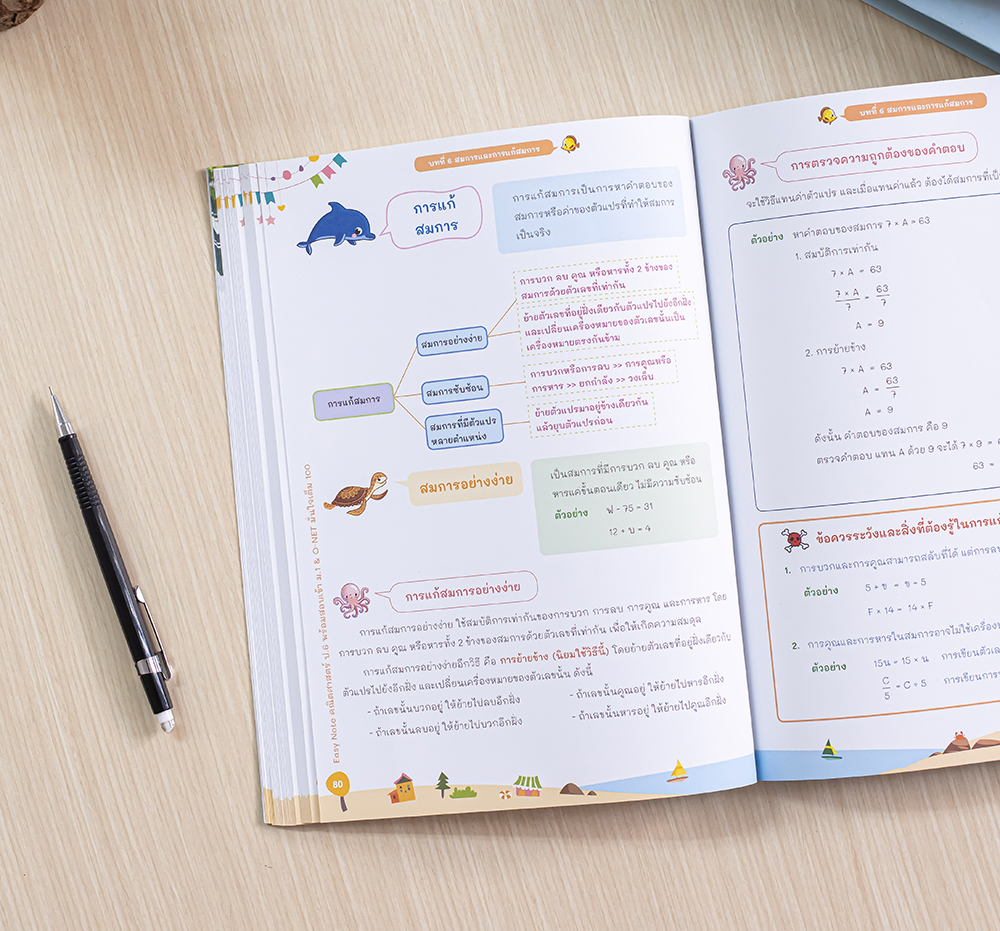 บทที่ 6 สมการและการแก้สมการ
การแก้
สมการ
การแก้สมการเป็นการหาคำตอบของ
สมการหรือค่าของตัวแปรที่ทำให้สมการ
เป็นจริง
การแก้สมการ
สมการอย่างง่าย
การบวก ลบ คูณ หรือหารทั้ง 2 ข้างของ
สมการด้วยตัวเลขที่เท่ากัน
ย้ายตัวเลขที่อยู่ฝั่งเดียวกับตัวแปรไปยังอีกฝั่ง
และเปลี่ยนเครื่องหมายของตัวเลขนั้นเป็น
เครื่องหมายตรงกันข้าม
สมการซับซ้อน
การบวกหรือการลบ >> การคูณหรือ
การหาร >> ยกกำลัง >> วงเล็บ
สมการที่มีตัวแปร
หลายตำแหน่ง
ย้ายตัวแปรมาอยู่ข้างเดียวกัน
แล้วยุบตัวแปรก่อน
สมการอย่างง่าย
เป็นสมการที่มีการบวก ลบ คูณ หรือ
หารแค่ขั้นตอนเดียว ไม่มีความซับซ้อน
ตัวอย่าง ฟ - 75 = 31
12 + บ = 4
การแก้สมการอย่างง่าย
การแก้สมการอย่างง่าย ใช้สมบัติการเท่ากันของการบวก การลบ การคูณ และการหาร โดย
การบวก ลบ คูณ หรือหารทั้ง 2 ข้างของสมการด้วยตัวเลขที่เท่ากัน เพื่อให้เกิดความสมดุล
การแก้สมการอย่างง่ายอีกวิธี คือ การย้ายข้าง (นิยมใช้วิธีนี้) โดยย้ายตัวเลขที่อยู่ฝั่งเดียวกับ
ตัวแปรไปยังอีกฝั่ง และเปลี่ยนเครื่องหมายของตัวเลขนั้น ดังนี้
- ถ้าเลขนั้นบวกอยู่ ให้ย้ายไปลบอีกฝั่ง
- ถ้าเลขนั้นคูณอยู่ ให้ย้ายไปหารอีกฝั่ง
- ถ้าเลขนั้นลบอยู่ ให้ย้ายไปบวกอีกฝั่ง
- ถ้าเลขนั้นหารอยู่ ให้ย้ายไปคูณอีกฝั่ง
Easy Note คณิตศาสตร์ ป.6 พร้อมสอบเข้า ม.1 & O-NET มั่นใจเต็ม 100
80
บทที่ 6 สมการและการแก้สมการ
การตรวจความถูกต้องของคำตอบ
จะใช้วิธีแทนค่าตัวแปร และเมื่อแทนค่าแล้ว ต้องได้สมการที่เป็น
ตัวอย่าง หาคำตอบของสมการ 7 × A = 63
1. สมบัติการเท่ากัน
7 × A = 63
7 × A / 7 = 63 / 7
A = 9
2. การย้ายข้าง
7 × A = 63
A = 63 / 7
A = 9
ดังนั้น คำตอบของสมการ คือ 9
ตรวจคำตอบ แทน A ด้วย 9 จะได้ 7 × 9 =
63 =
ข้อควรระวังและสิ่งที่ต้องรู้ในการแก้
1. การบวกและการคูณสามารถสลับที่ได้ แต่การลบ
ตัวอย่าง 5 + ข = ข + 5
F × 14 = 14 × F
2. การคูณและการหารในสมการอาจไม่ใช้เครื่องหมาย
ตัวอย่าง 15น = 15 × น การเขียนตัวเลข
C / 5 = C ÷ 5 การเขียนการ